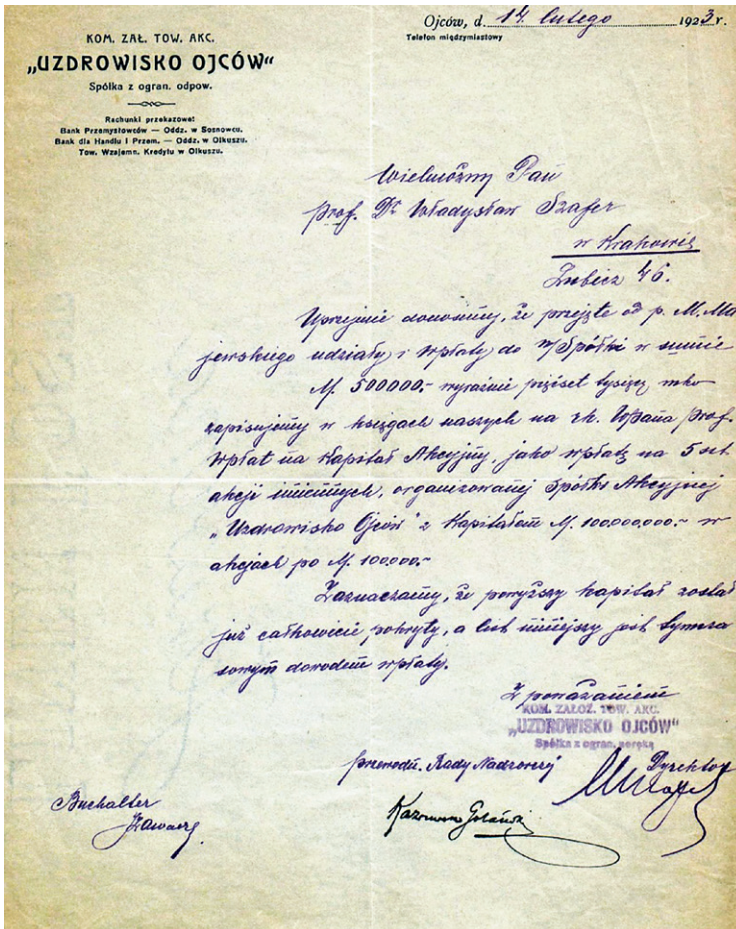 KOM. ZAŁ. TOW. AKC.
„UZDROWISKO OJCÓW“
Spółka z ogran. odpow.
Rachunki przekazowe:
Bank Przemysłowców — Oddz. w Sosnowcu.
Bank dla Handlu i Przem. — Oddz. w Olkuszu.
Tow. Wzajemn. Kredytu w Olkuszu.
Ojców, d. 14 lutego 1923 r.
Telefon międzymiastowy
Wielmożny Pan
prof. Dr Władysław Szafer
w Krakowie
Lubicz 46.
Uprzejmie donosimy, że przejęte od p. M. Ma
jewskiego udziały i wpłaty do n/Spółki w sumie
M. 500000.- wyraźnie pięćset tysięcy mk
zapisujemy w księgach naszych na rh. WPana prof.
wpłat na Kapitał Akcyjny, jako wpłatę na 5 szt.
akcji imiennych, organizowanej Spółki Akcyjnej
„Uzdrowisko Ojców" z Kapitałem M. 100.000.000.- w
akcjach po M. 100.000.-
Zaznaczamy, że powyższy kapitał został
już całkowicie pokryty, a list niniejszy jest tymcza
sowym dowodem wpłaty.
Z poważaniem
KOM. ZAŁOŻ. TOW. AKC.
„UZDROWISKO OJCÓW“
Spółka z ogran. poręką
przewodn. Rady Nadzorczej
Dyrektor
Buchalter